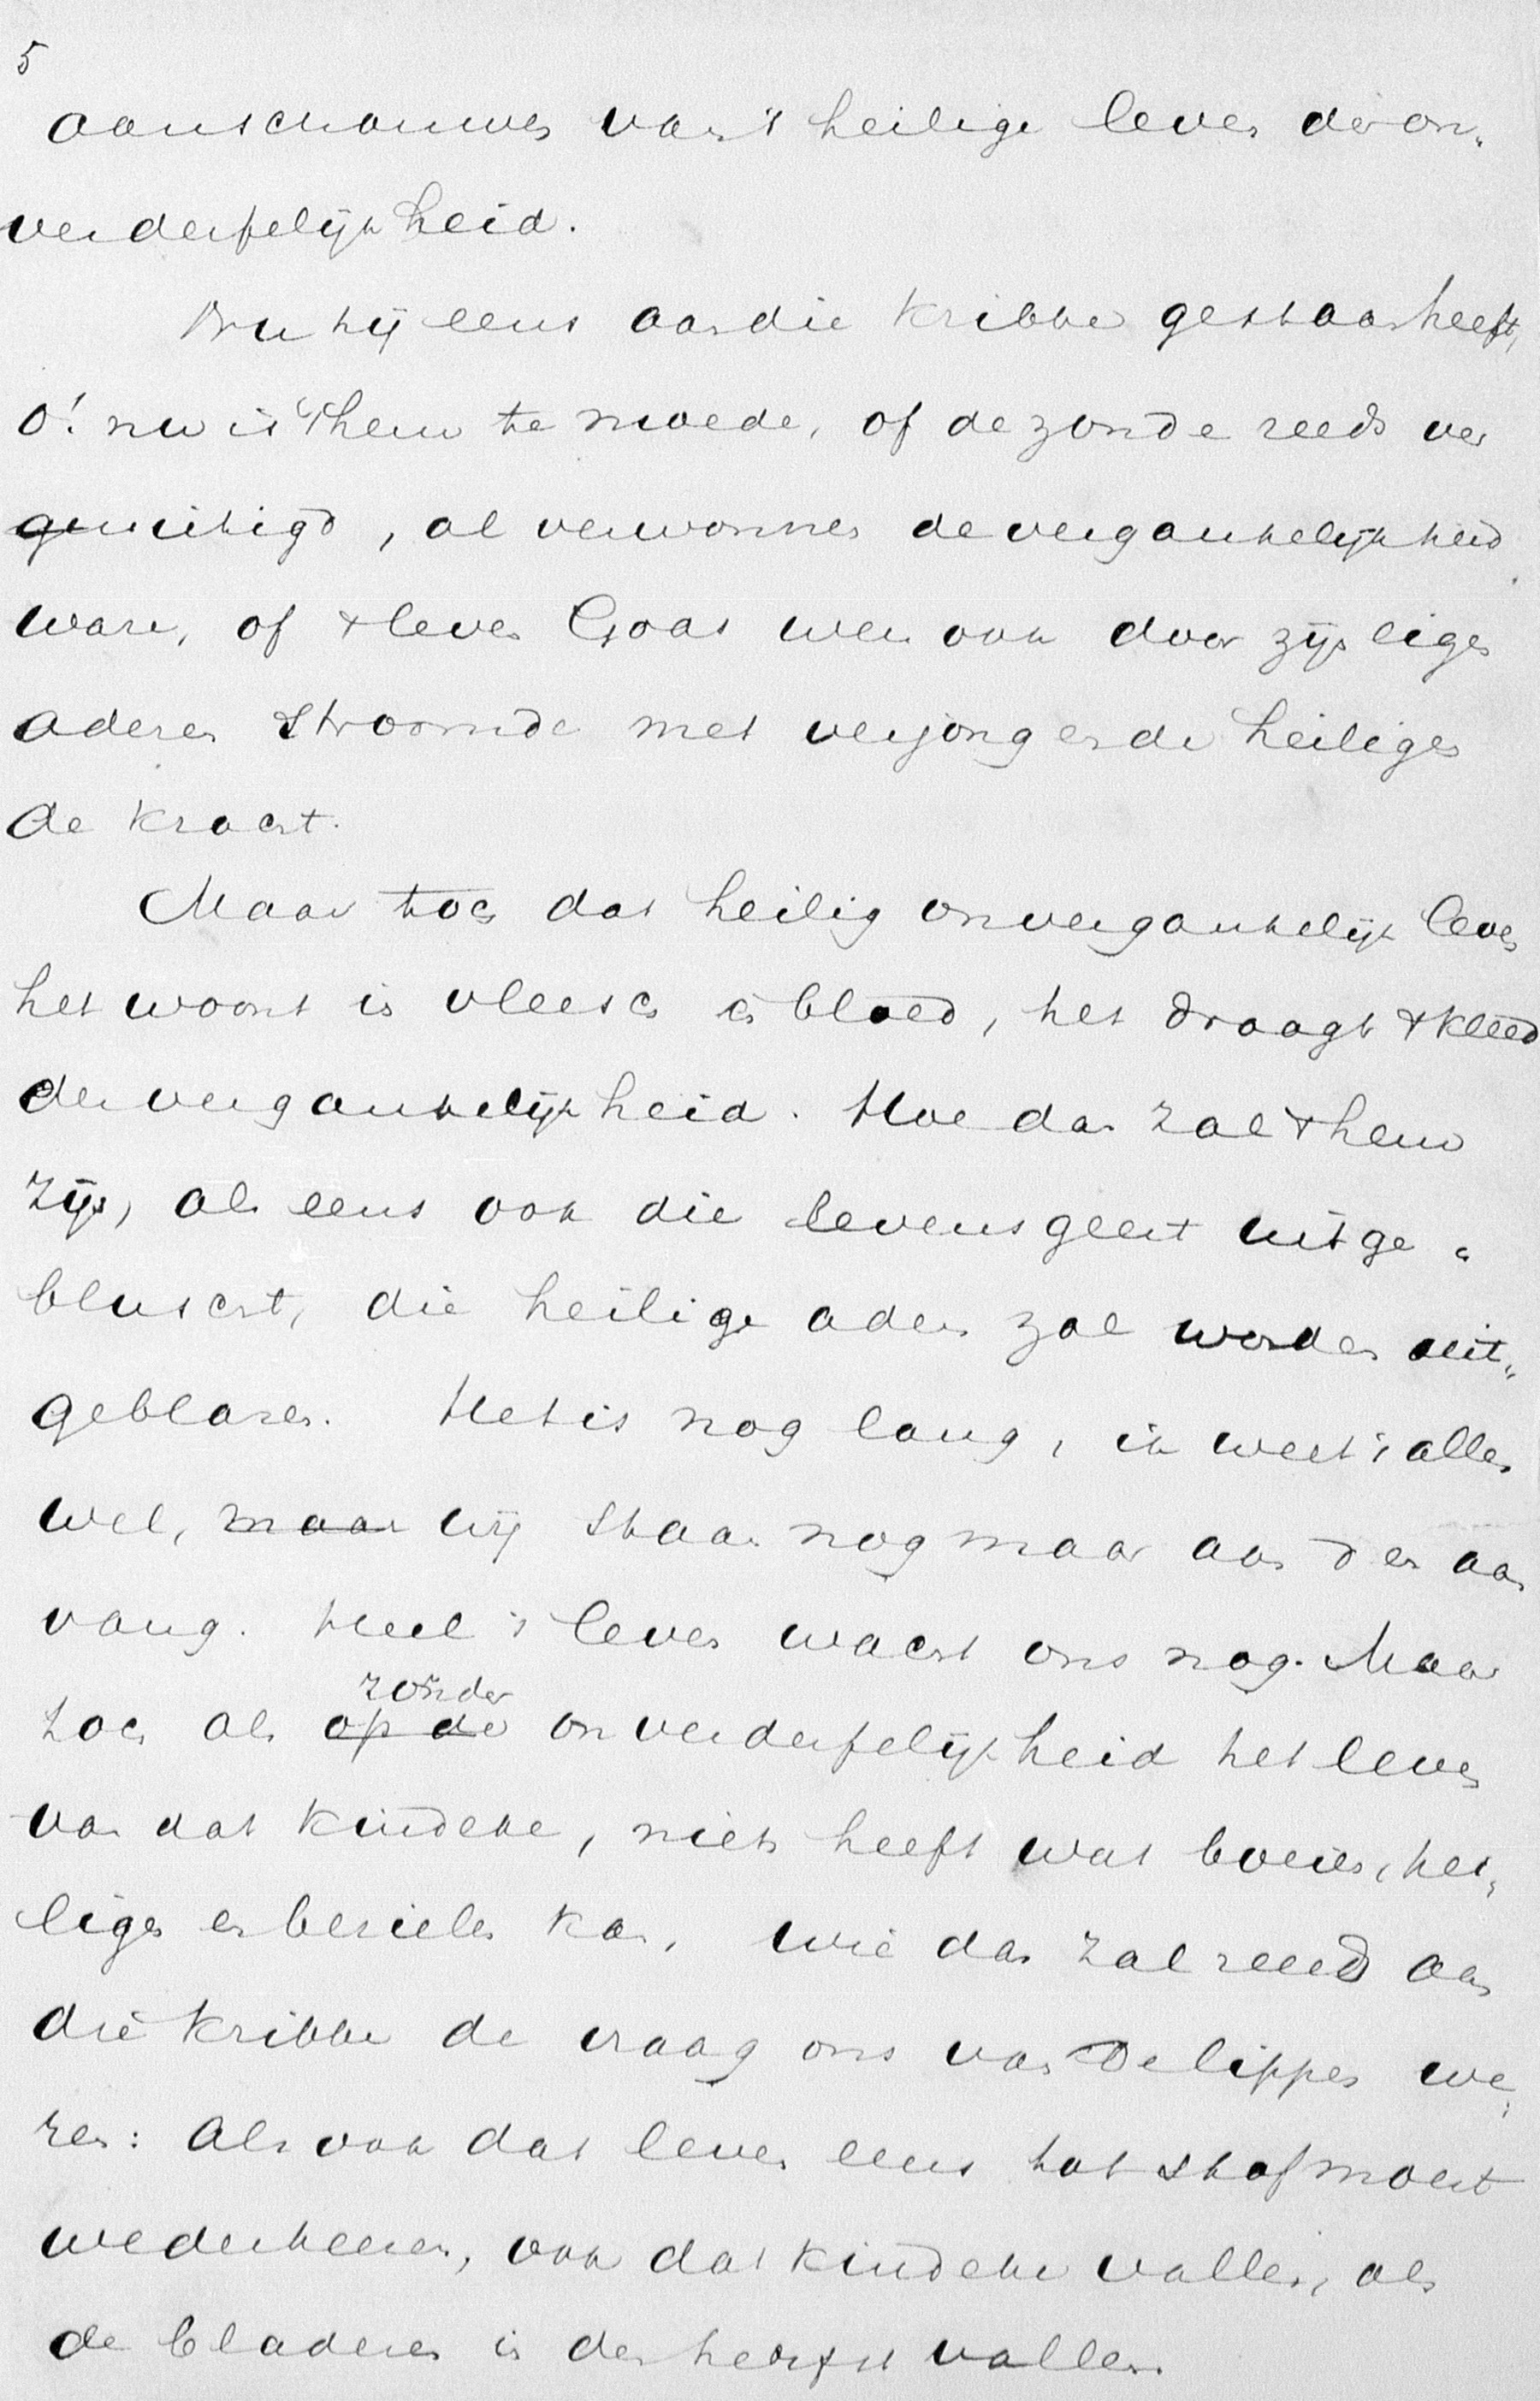 5
aanschouwen van 't heilige leven der on„
verderfelijkheid.
Nu hij eens aan die kribbe gestaan heeft,
o! nu is 't hem te moede, of de zonde reeds ver
nietigd, al verwonnen de vergankelijkheid
ware, of 't leven Gods wel ook door zijn eigen
aderen stroomde met verjongende heiligen
de kracht.
Maar toch dat heilig onvergankelijk leven
het woont in vleesch en bloed, het draagt 't kleed
der vergankelijkheid. Hoe dan zal 't hem
zijn, als eens ook die levensgeest uitge„
bluscht, die heilige adem zal worden uit„
geblazen. Het is nog lang, ik weet 't allen
wel, maar wij staan nog maar aan den aan
vang. Heel 't leven wacht ons nog. Maar
zonder
toch als op de onverderfelijkheid het leven
van dat kindeke, niets heeft wat boeien, hei„
ligen en bezielen kan, wie dan zal reeds aan
die kribbe de vraag ons van de lippen we„
ren: Als ook dat leven eens tot stof moest
wederkeeren, ook dat kindeke vallen, als
de bladeren in den herfst vallen.